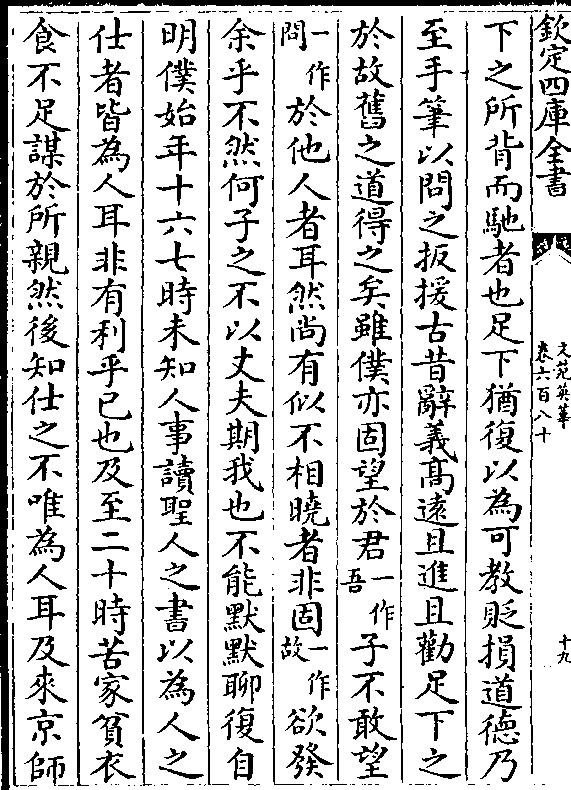 欽定四庫全書
文苑英華
卷六百八十
十九
下之所背而馳者也足下猶復以為可教貶損道德乃
至手筆以問之扳援古昔辭義高遠且進且勸足下之
於故舊之道得之矣雖僕亦固望於君一作吾子不敢望
問一作於他人者耳然尚有似不相曉者非固一作故欲發
余乎不然何子之不以丈夫期我也不能默默聊復自
明僕始年十六七時未知人事讀聖人之書以為人之
仕者皆為人耳非有利乎已也及至二十時苦家貧衣
食不足謀於所親然後知仕之不唯為人耳及來京師